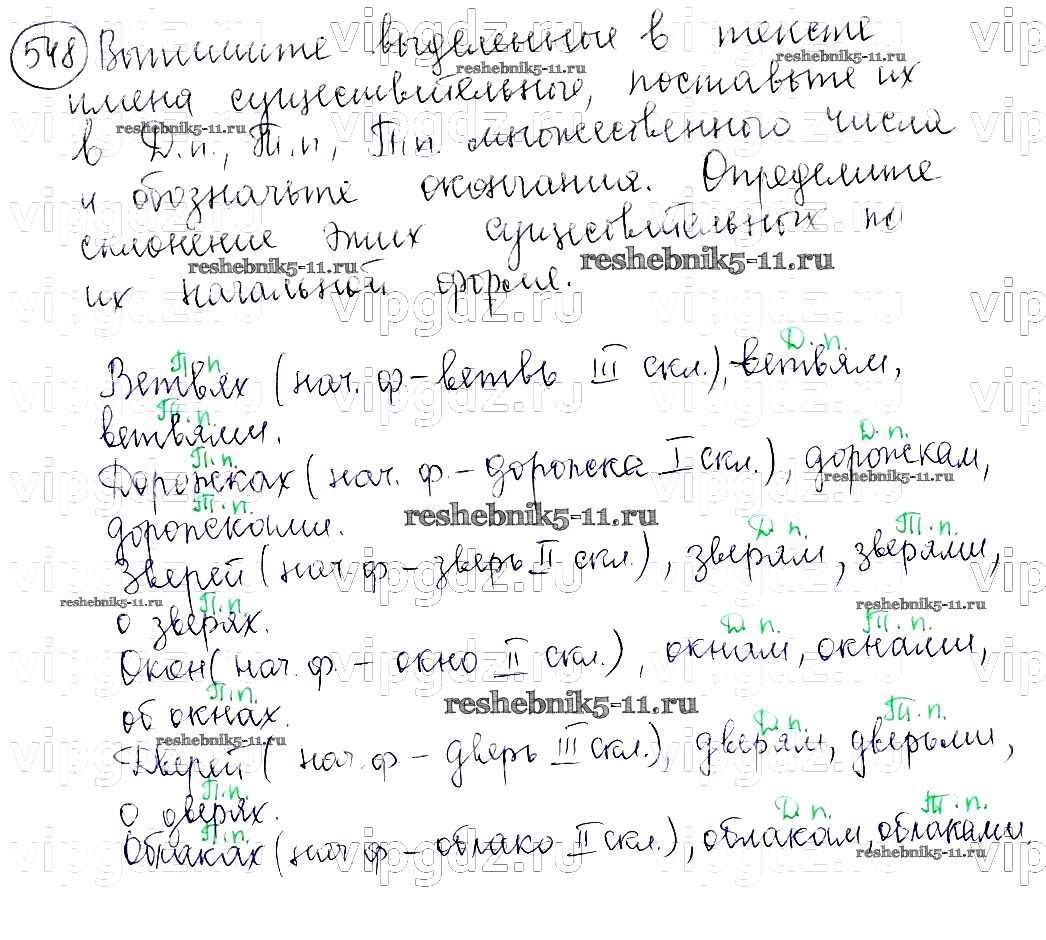 548 Выпишите выделенные в тексте
имена существительные, поставьте их
в Д.п., Т.п., П.п. множественного числа
и обозначьте окончания. Определите
склонение этих существительных по
их начальной форме.
П.п. Д.п.
Ветвях (нач. ф - ветвь III скл.), ветвям,
Т.п.
ветвями.
П.п. Д.п.
Дорожках (нач. ф - дорожка I скл.), дорожкам,
Т.п.
дорожками.
Д.п. Т.п.
Зверей (нач. ф - зверь II скл.), зверям, зверями,
П.п.
о зверях.
Д.п. Т.п.
Окон (нач. ф - окно II скл.), окнам, окнами,
П.п.
об окнах.
Д.п. Т.п.
Дверей (нач. ф - дверь III скл.), дверям, дверьми,
П.п.
о дверях.
П.п. Д.п. Т.п.
Облаках (нач ф - облако II скл.), облакам, облаками.
vipgdz.ru
reshebnik5-11.ru